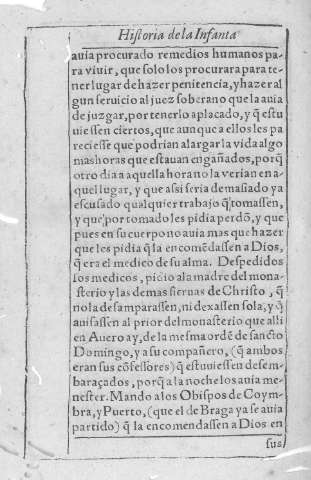 Historia de la Infanta
auia procurado remedios humanos pa-
ra viuir, que solo los procurara para te-
ner lugar de hazer penitencia, y hazer al
gun seruicio al juez soberano que la auia
de juzgar, por tenerlo aplacado, y q̃ estu
uiessen ciertos, que aunque a ellos les pa
reciesse que podrian alargar la vida algo
mas horas que estauan engañados, porq̃
otro dia a aquella hora no la verian en a-
quel lugar, y que assi seria demasiado ya
escusado qualquier trabajo q̃ tomassen,
y que por tomado les pidia perdõ, y que
pues en su cuerpo no auia mas que hazer
que les pidia q̃ la encomẽdassen a Dios,
q̃ era el medico de su alma. Despedidos
los medicos, pidio a la madre del mona-
sterio y las demas sieruas de Christo, q̃
no la desamparassen, ni dexassen sola, y q̃
auisassen al prior del monasterio que alli
en Auero ay, de la mesma ordẽ de sancto
Domingo, y a su compañero, (q̃ ambos
eran sus cõfessores) q̃ estuuiessen desem-
baraçados, porq̃ a la noche los auia me-
nester. Mando a los Obispos de Coym-
bra, y Puerto, (que el de Braga ya se auia
partido) q̃ la encomendassen a Dios en
sus